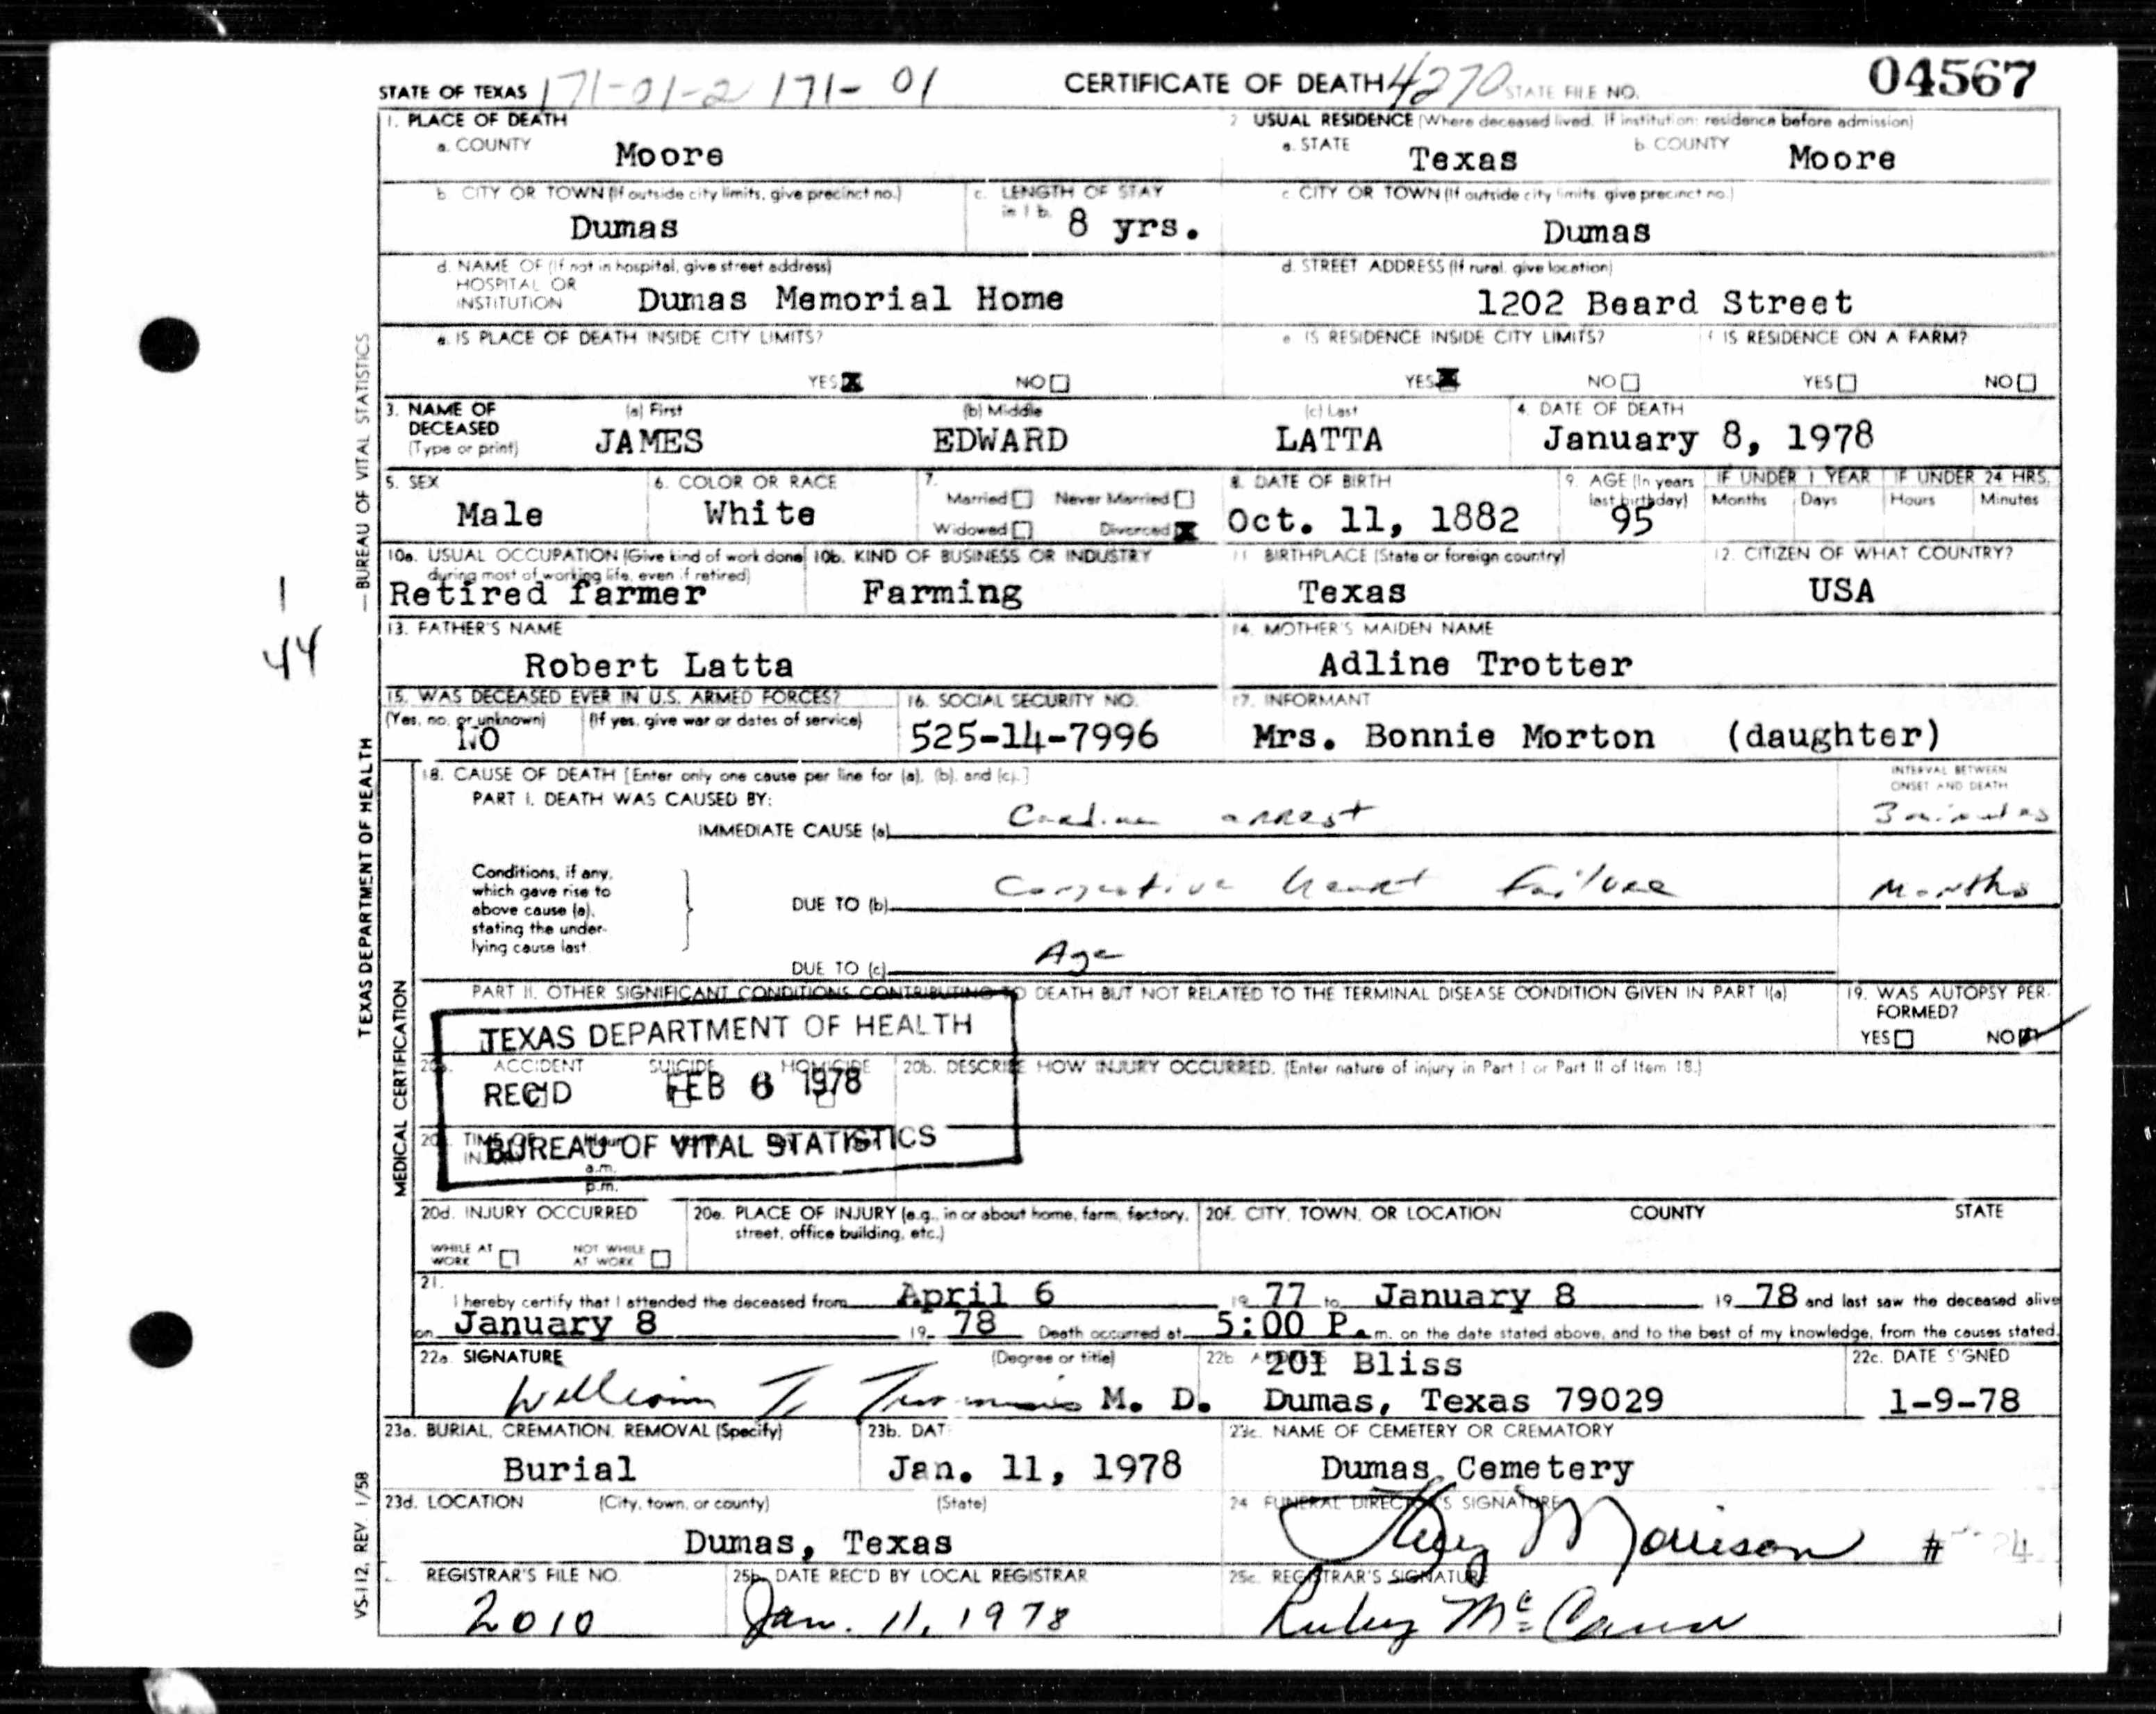 STATE OF TEXAS 171-01-2 171-01 CERTIFICATE OF DEATH 4270 STATE FILE NO. 04567
1. PLACE OF DEATH 2 USUAL RESIDENCE (Where deceased lived. If institution: residence before admission)
a. COUNTY Moore a. STATE Texas b. COUNTY Moore
b. CITY OR TOWN (If outside city limits, give precinct no.) c. LENGTH OF STAY in 1 b. 8 yrs. c. CITY OR TOWN (If outside city limits, give precinct no.)
Dumas Dumas
d. NAME OF (If not in hospital, give street address) HOSPITAL OR INSTITUTION Dumas Memorial Home d. STREET ADDRESS (If rural, give location) 1202 Beard Street
e. IS PLACE OF DEATH INSIDE CITY LIMITS? e IS RESIDENCE INSIDE CITY LIMITS? f IS RESIDENCE ON A FARM?
YES NO YES NO YES NO
3. NAME OF DECEASED (Type or print) (a) First (b) Middle (c) Last 4. DATE OF DEATH
JAMES EDWARD LATTA January 8, 1978
5. SEX 6. COLOR OR RACE 7. Married Never Married Widowed Divorced 8. DATE OF BIRTH 9. AGE (In years last birthday) IF UNDER 1 YEAR Months Days IF UNDER 24 HRS. Hours Minutes
Male White Oct. 11, 1882 95
10a. USUAL OCCUPATION (Give kind of work done during most of working life, even if retired) 10b. KIND OF BUSINESS OR INDUSTRY 11 BIRTHPLACE (State or foreign country) 12. CITIZEN OF WHAT COUNTRY?
Retired farmer Farming Texas USA
13. FATHER'S NAME 14. MOTHER'S MAIDEN NAME
Robert Latta Adline Trotter
15. WAS DECEASED EVER IN U.S. ARMED FORCES? 16. SOCIAL SECURITY NO. 17. INFORMANT
(Yes, no, or unknown) (If yes, give war or dates of service)
No 525-14-7996 Mrs. Bonnie Morton (daughter)
18. CAUSE OF DEATH [Enter only one cause per line for (a), (b), and (c).] INTERVAL BETWEEN ONSET AND DEATH
PART I. DEATH WAS CAUSED BY:
IMMEDIATE CAUSE (a) Cardiac arrest 3 minutes
Conditions, if any, which gave rise to above cause (a), stating the underlying cause last.
DUE TO (b) Congestive heart failure Months
DUE TO (c) Age
PART II. OTHER SIGNIFICANT CONDITIONS CONTRIBUTING TO DEATH BUT NOT RELATED TO THE TERMINAL DISEASE CONDITION GIVEN IN PART I(a) 19. WAS AUTOPSY PERFORMED?
YES NO
TEXAS DEPARTMENT OF HEALTH
REC'D FEB 6 1978
BUREAU OF VITAL STATISTICS
20a. ACCIDENT SUICIDE HOMICIDE 20b. DESCRIBE HOW INJURY OCCURRED. (Enter nature of injury in Part I or Part II of Item 18.)
TIME OF INJURY Hour a.m. p.m.
20d. INJURY OCCURRED 20e. PLACE OF INJURY (e.g., in or about home, farm, factory, street, office building, etc.) 20f. CITY, TOWN, OR LOCATION COUNTY STATE
WHILE AT WORK NOT WHILE AT WORK
21. I hereby certify that I attended the deceased from April 6 19 77 to January 8 19 78 and last saw the deceased alive
on January 8 19 78 Death occurred at 5:00 P.m. on the date stated above, and to the best of my knowledge, from the causes stated.
22a. SIGNATURE (Degree or title) 22b 201 Bliss 22c. DATE SIGNED
William T. M. D. Dumas, Texas 79029 1-9-78
23a. BURIAL, CREMATION, REMOVAL (Specify) 23b. DATE 23c. NAME OF CEMETERY OR CREMATORY
Burial Jan. 11, 1978 Dumas Cemetery
23d. LOCATION (City, town, or county) (State) 24 FUNERAL DIRECTOR'S SIGNATURE
Dumas, Texas Morrison #
REGISTRAR'S FILE NO. 25b. DATE REC'D BY LOCAL REGISTRAR 25c. REGISTRAR'S SIGNATURE
2010 Jan. 11, 1978 Ruby McCann
1
44
TEXAS DEPARTMENT OF HEALTH — BUREAU OF VITAL STATISTICS
MEDICAL CERTIFICATION
VS-112, REV. 1/58